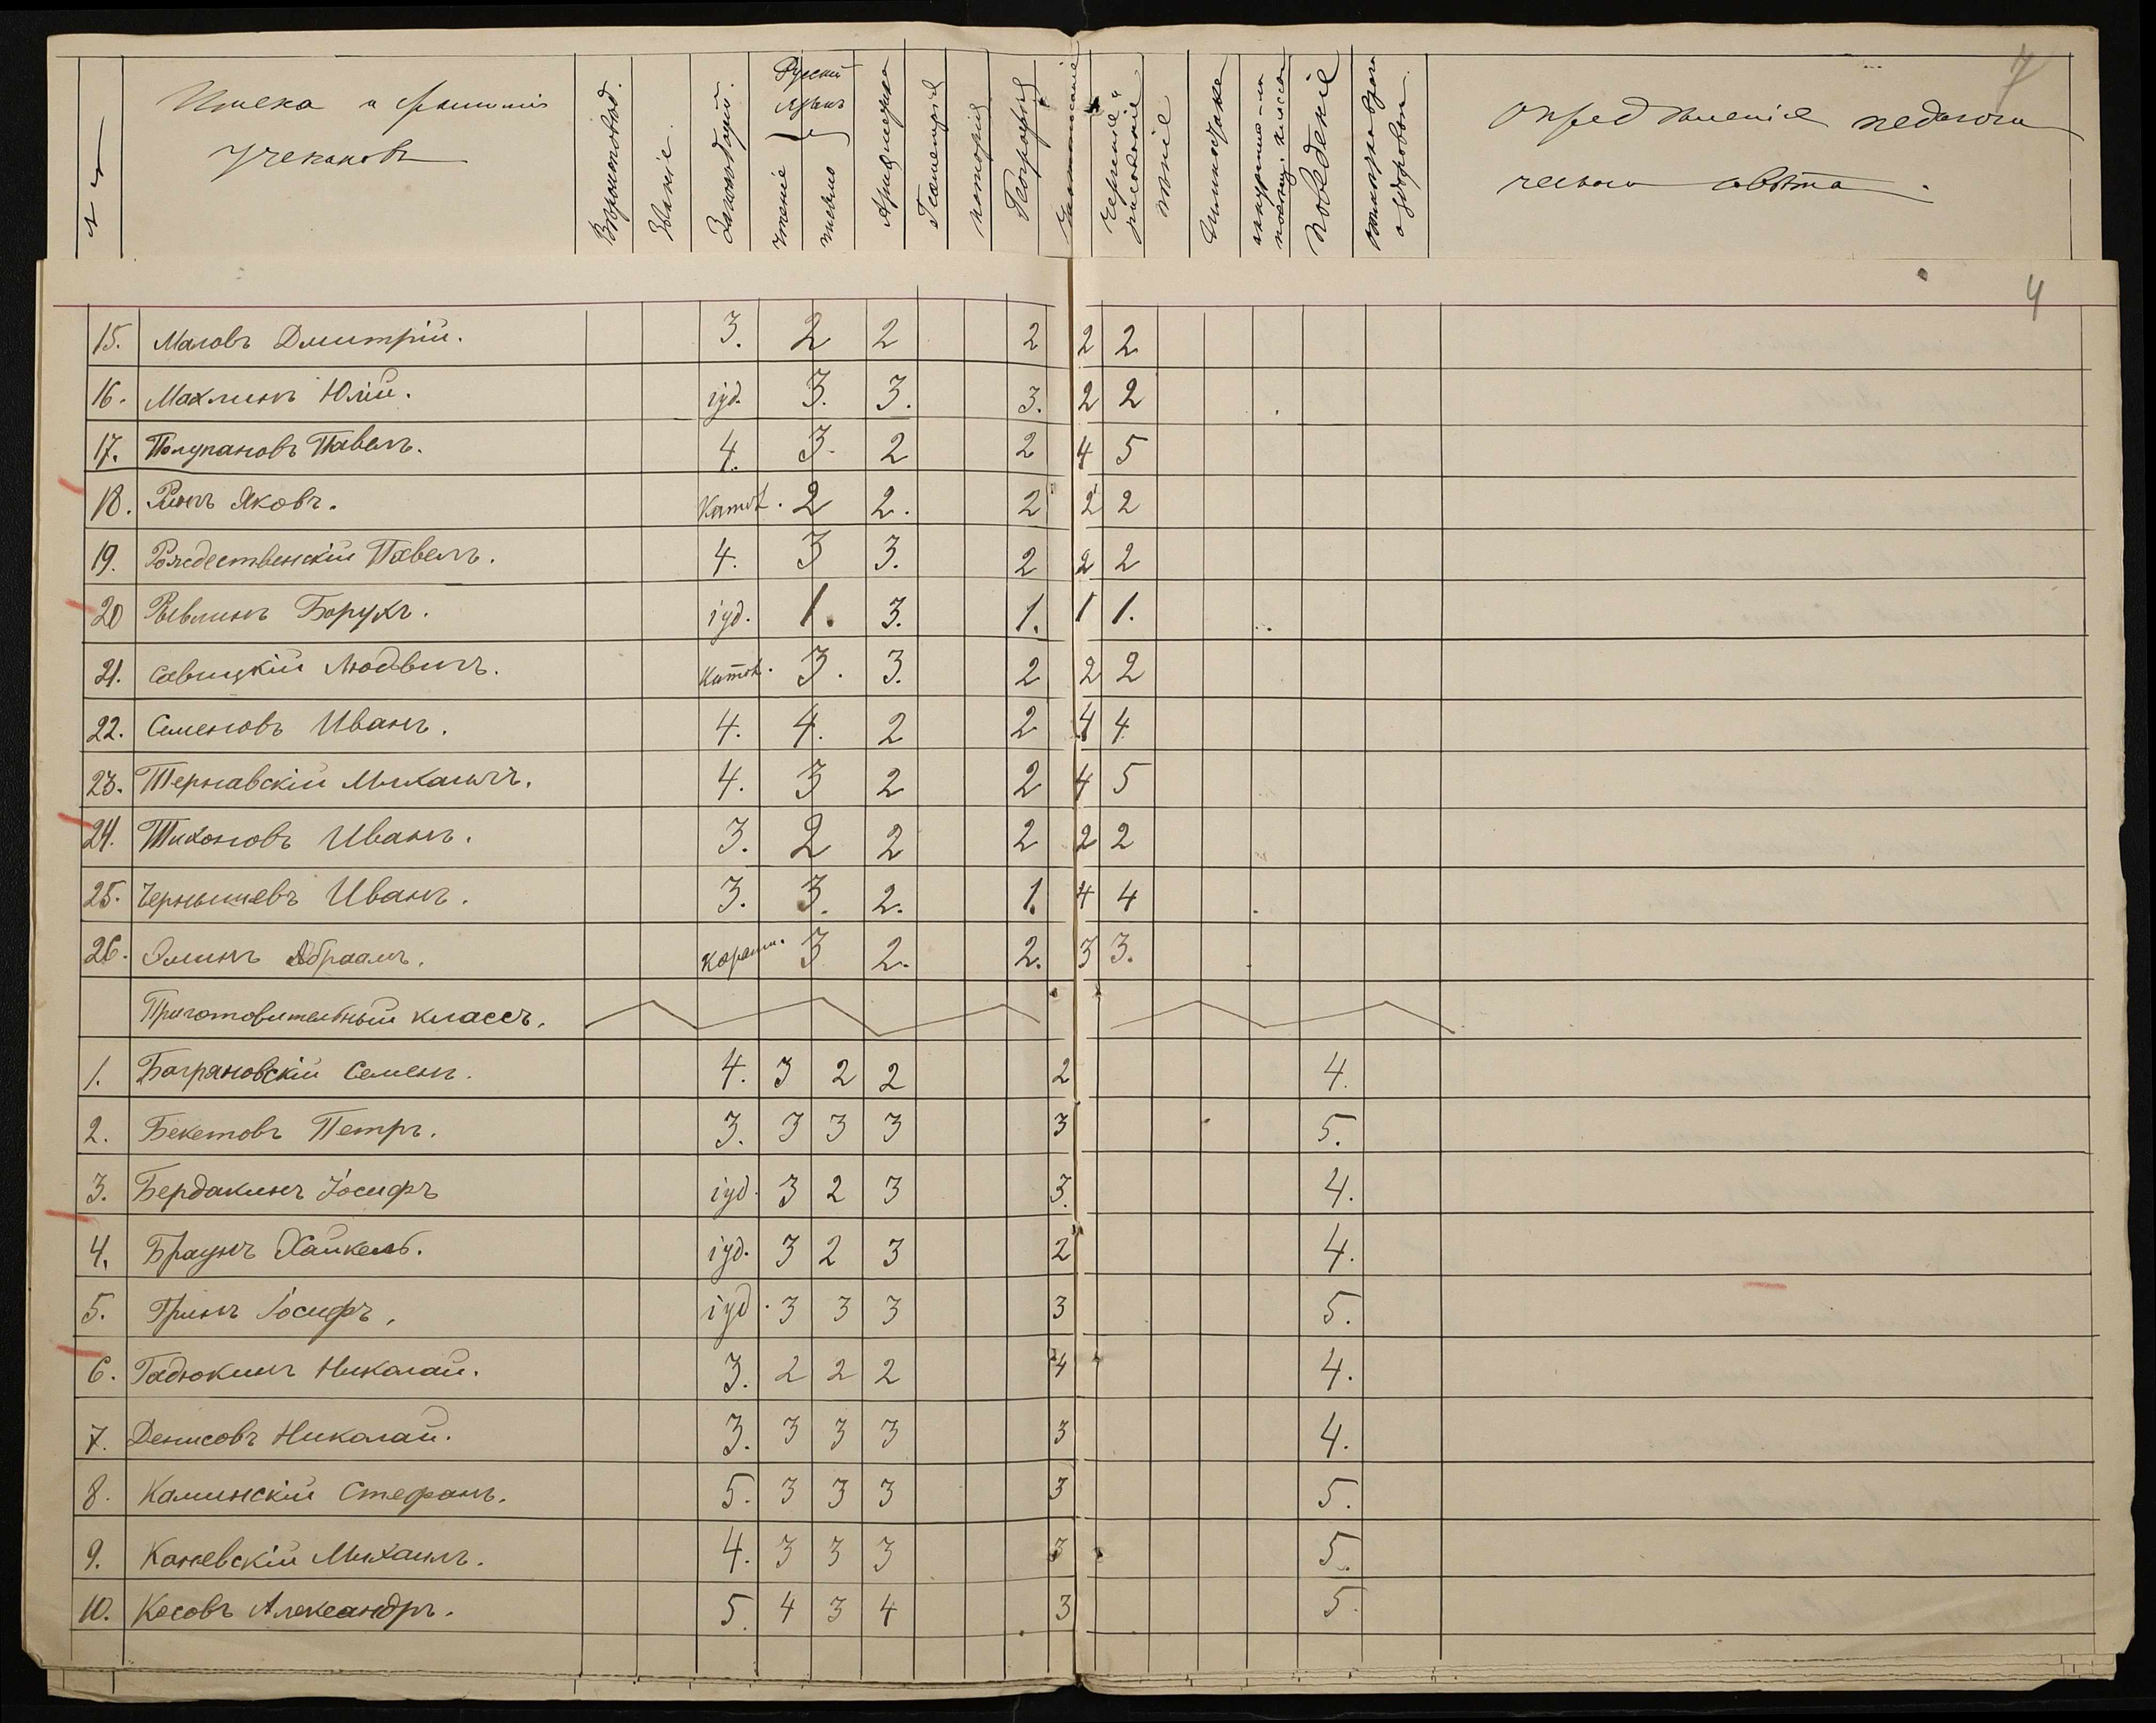 Имена и фамилии
учениковъ
Вѣроисповѣд.
Званіе.
Законъ Божій.
Русскій
языкъ
чтеніе
письмо
Ариѳметика
Геометрія
исторія
Географія
Чистописаніе
черченіе и
рисованіе
пѣніе
Гимнастика
Поведеніе
Опредѣленіе педагоги
ческаго совѣта.
7
4
15. Маловъ Дмитрій. 3. 2 2 2 2 2
16. Махлинъ Юлій. іуд. 3. 3. 3. 2 2
17. Полупановъ Павелъ. 4. 3. 2 2 4 5
18. Яковъ. Катол. 2 2. 2 2 2
19. Рождественскій Павелъ. 4. 3 3. 2 2 2
20 Рывлинъ Борухъ. іуд. 1. 3. 1. 1 1.
21. Савицкій Людвигъ. Катол. 3. 3. 2 2 2
22. Семеновъ Иванъ. 4. 4. 2 2 4 4
23. Тернавскій Михаилъ. 4. 3 2 2 4 5
24. Тихоновъ Иванъ. 3. 2 2 2 2 2
25. Чернышевъ Иванъ. 3. 3. 2. 1. 4 4
26. Элинъ Абраамъ. Караим. 3 2. 2. 3 3.
Приготовительный классъ.
1. Багряновскій Семенъ. 4. 3 2 2 2 4.
2. Бекетовъ Петръ. 3. 3 3 3 3 5.
3. Бердакинъ Іосифъ іуд. 3 2 3 3. 4.
4. Браунъ Хайкель. іуд. 3 2 3 2 4.
5. Гринъ Іосифъ, іуд. 3 3 3 3 5.
6. Гадюкинъ Николай. 3. 2 2 2 4 4.
7. Денисовъ Николай. 3. 3 3 3 3 4.
8. Каминскій Стефанъ. 5. 3 3 3 3 5.
9. Каневскій Михаилъ. 4. 3 3 3 3 5.
10. Косовъ Александръ. 5. 4 3 4 3 5.